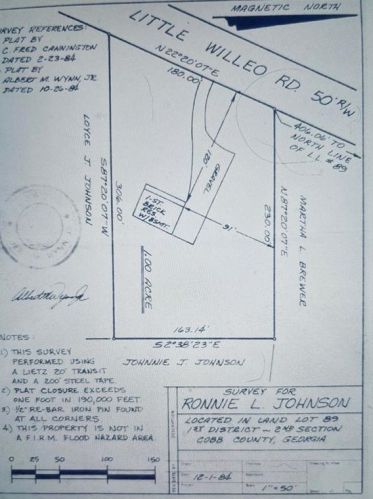 MAGNETIC NORTH
SURVEY REFERENCES:
PLAT BY
C. FRED CANNINGTON
DATED 2-23-84
PLAT BY
ALBERT M. WYNN, JR.
DATED 10-26-84
LITTLE WILLEO RD. 50' R/W
N22°20'07"E
180.00'
406.06' TO
NORTH LINE
OF L.L. #89
LOYCE J. JOHNSON
S87°20'07"W
306.00'
120'
GRAVEL
1-ST
BRICK
RES
W/BSMT
91'
230.00'
N87°20'07"E
MARTHA L. BREWER
1.00 ACRE
163.14'
S2°38'23"E
JOHNNIE J. JOHNSON
NOTES:
1) THIS SURVEY
PERFORMED USING
A LIETZ 20" TRANSIT
AND A 200' STEEL TAPE.
2) PLAT CLOSURE EXCEEDS
ONE FOOT IN 190,000 FEET.
3) 1/2" RE-BAR IRON PIN FOUND
AT ALL CORNERS.
4) THIS PROPERTY IS NOT IN
A F.I.R.M. FLOOD HAZARD AREA.
0 25 50 100 150
SURVEY FOR
RONNIE L. JOHNSON
LOCATED IN LAND LOT 89
1ST DISTRICT - 2ND SECTION
COBB COUNTY, GEORGIA
12-1-84
1"=50'